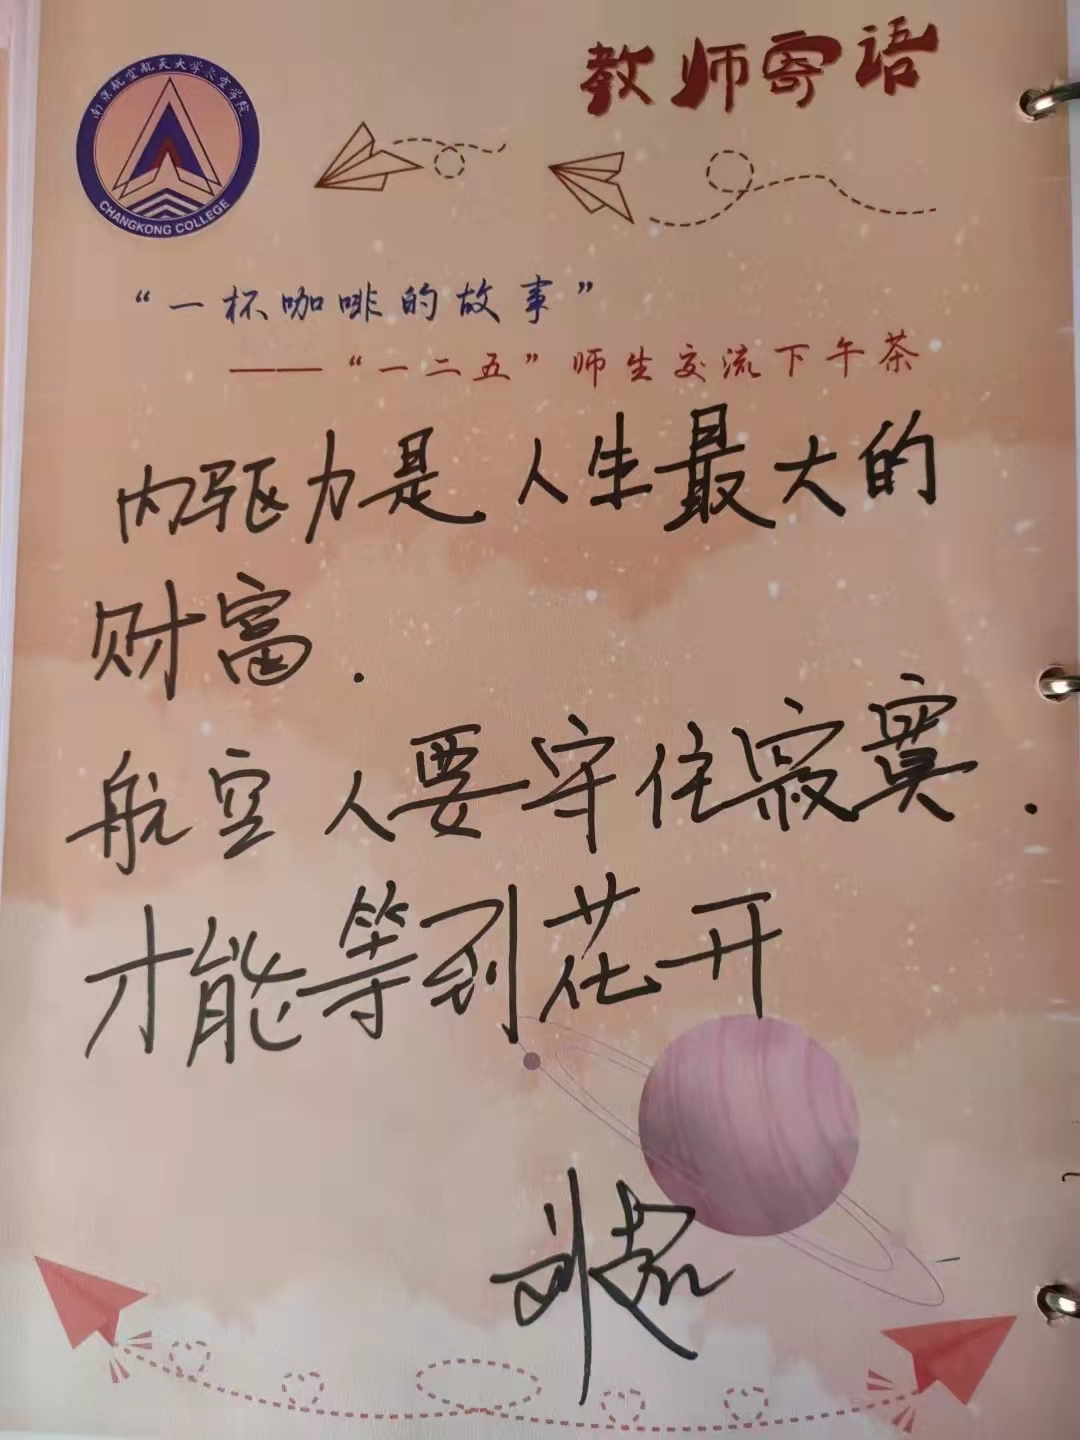 教师寄语
南京航空航天大学长空学院
CHANGKONG COLLEGE
“一杯咖啡的故事”
——“一二五”师生交流下午茶
内驱力是人生最大的
财富.
航空人要守住寂寞.
才能等到花开
刘